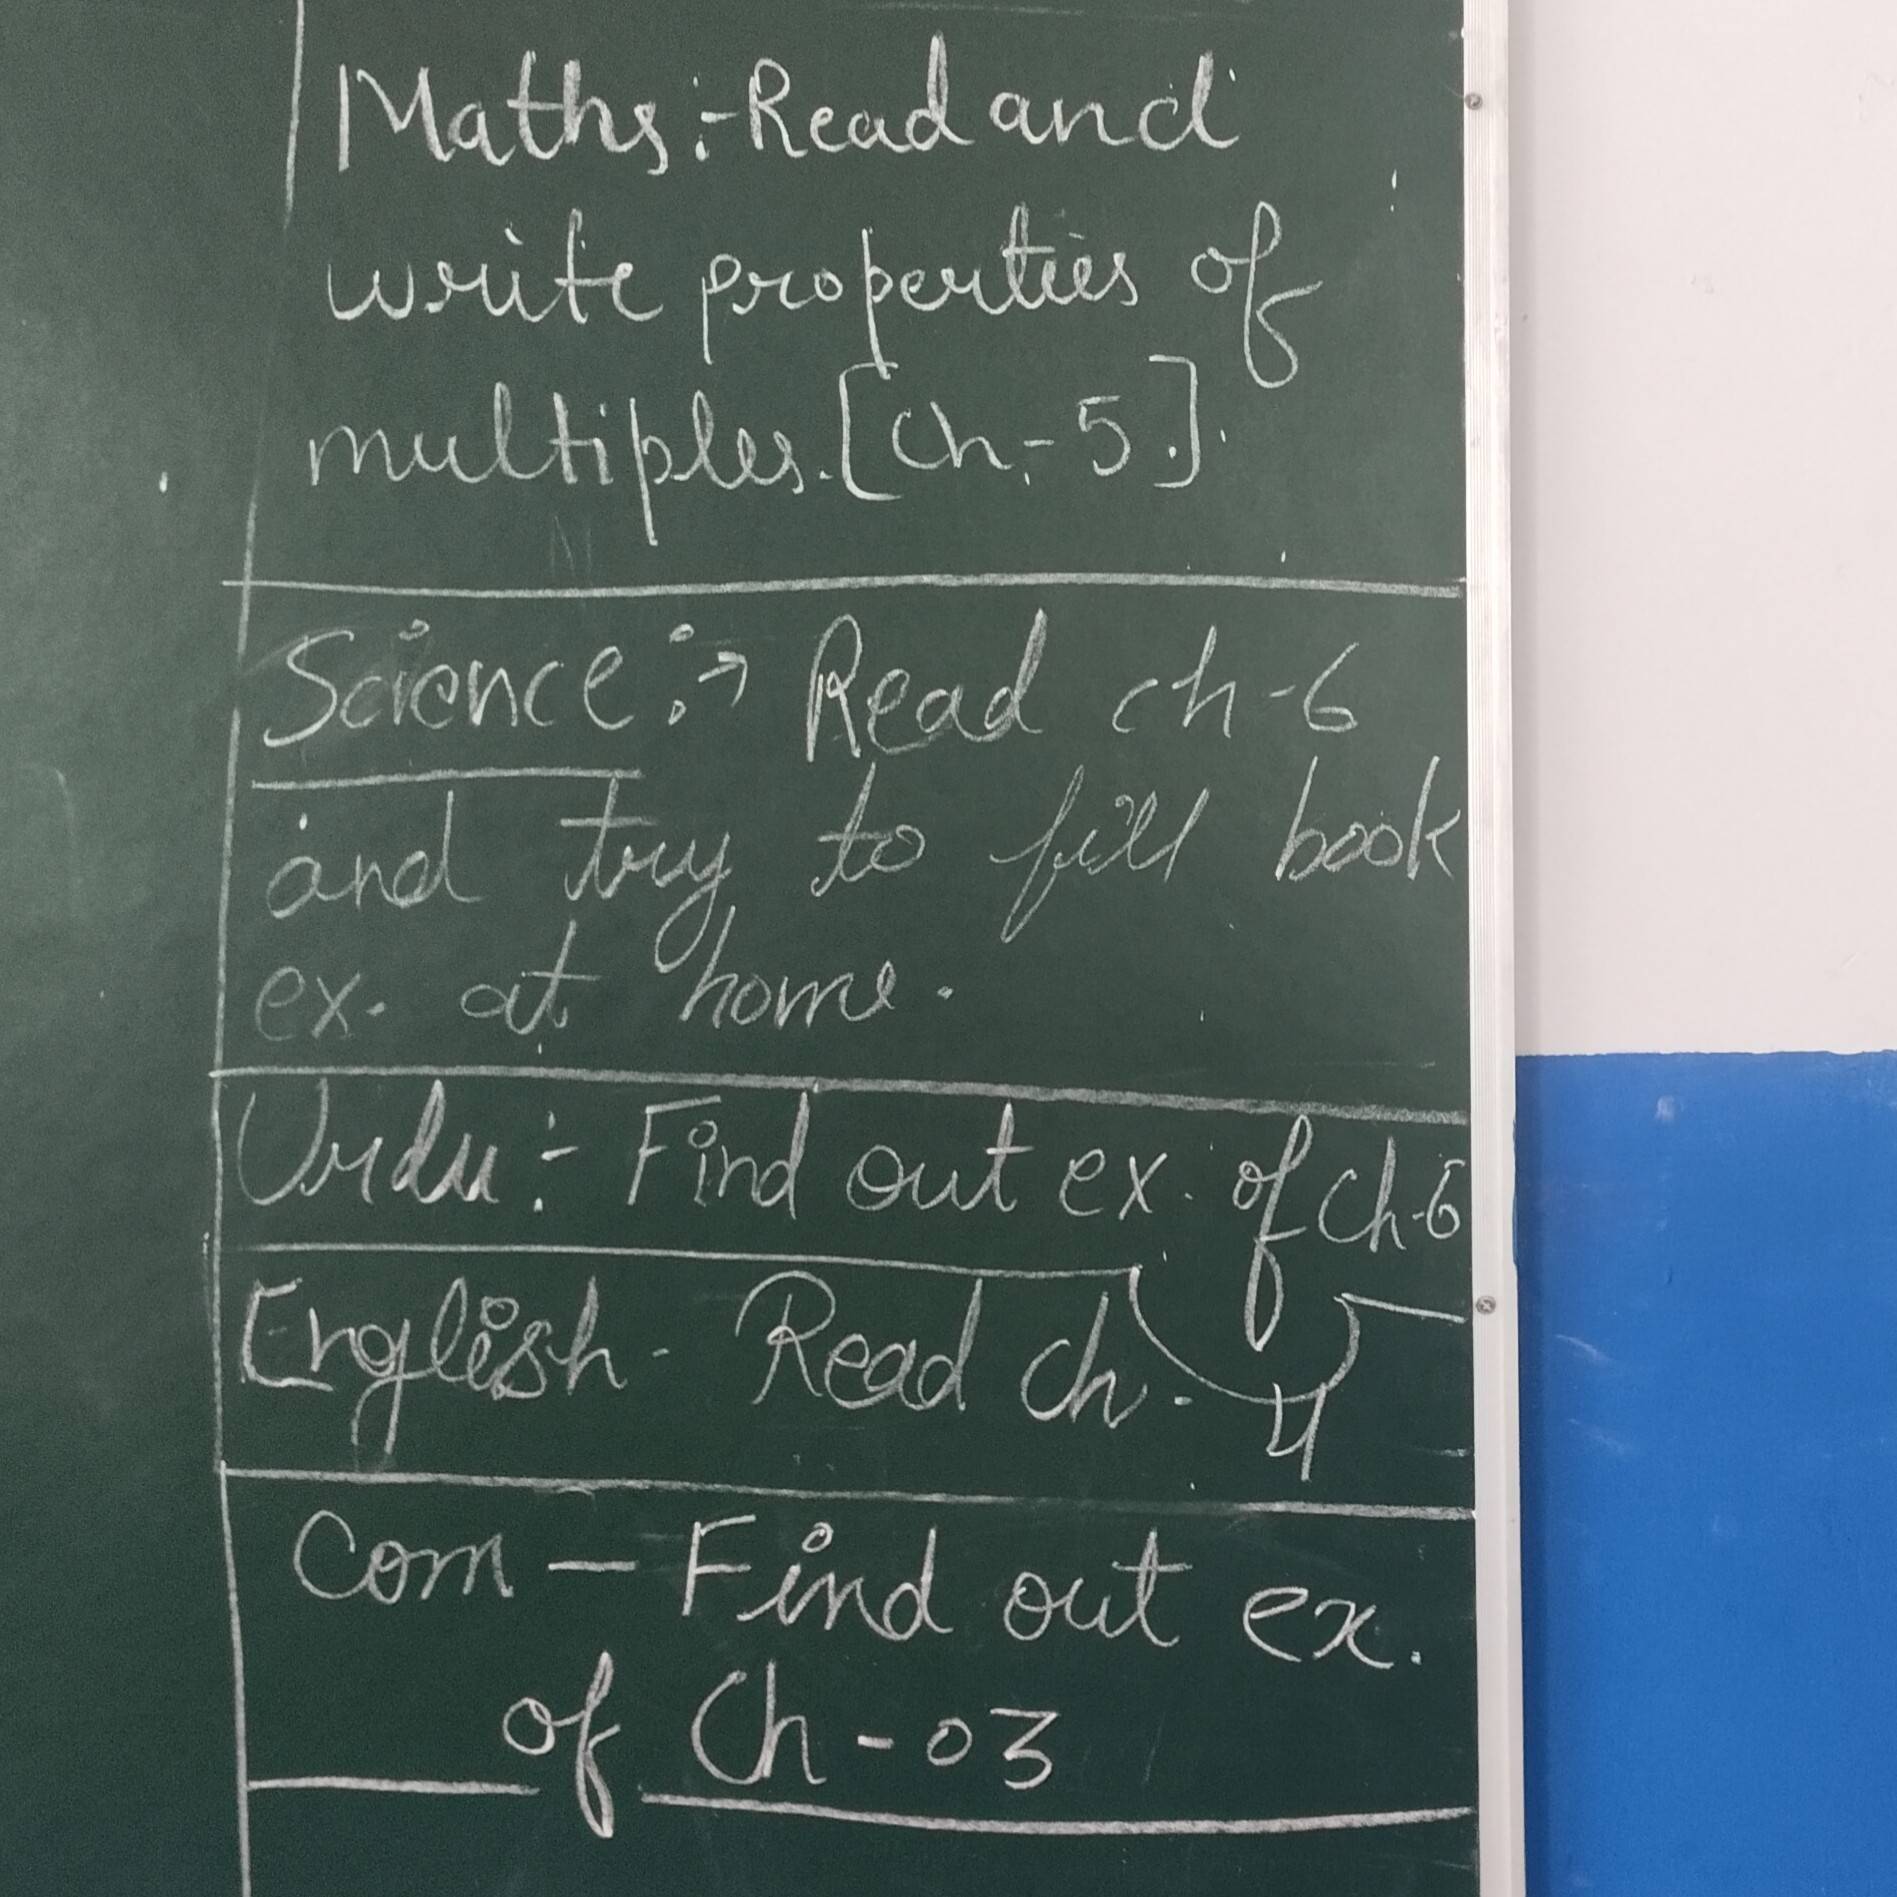 Maths:-Read and
write properties of
multiples.[Ch-5.]
Science:→ Read ch-6
and try to fill book
ex. at home.
Urdu:- Find out ex. of Ch-6
English- Read ch-4
Com — Find out ex.
of Ch-03